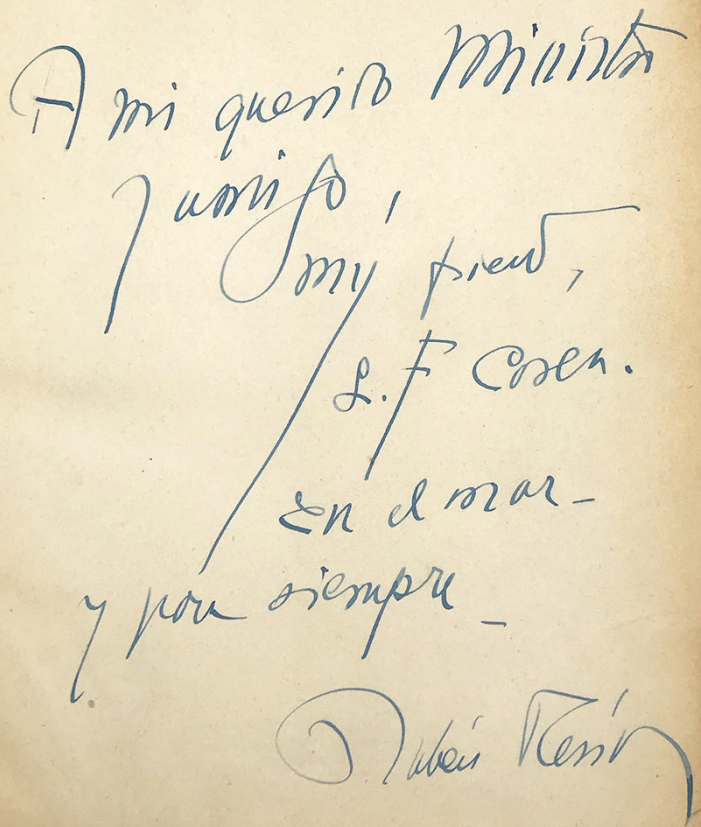 A mi querido Ministro
y amigo,
my friend,
L. F. Corea.
En el mar_
y para siempre_
Rubén Darío